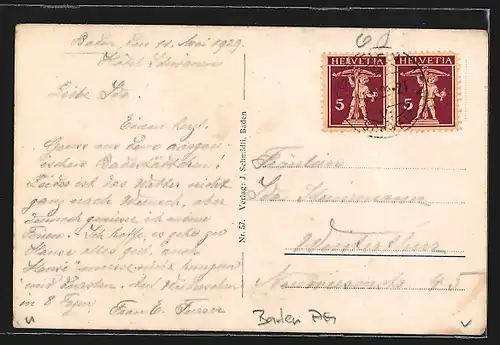 Baden, den 11. Mai 1929.
Hôtel Schwanen
Liebe Ida
Einen herzl.
Gruss aus dem
Badestädtchen!
Leider ist das Wetter nicht
ganz nach Wunsch, aber
dennoch geniesse ich meine
Ferien. Ich hoffe, es gehe zu
Hause alles gut, auch
und Auf Wiedersehen
in 8 Tagen
Frau E. Furrer
Nr. 57. Verlag: J. Schmidli, Baden
HELVETIA HELVETIA
5 5
Fräulein
Ida
Winterthur
45
Baden AG